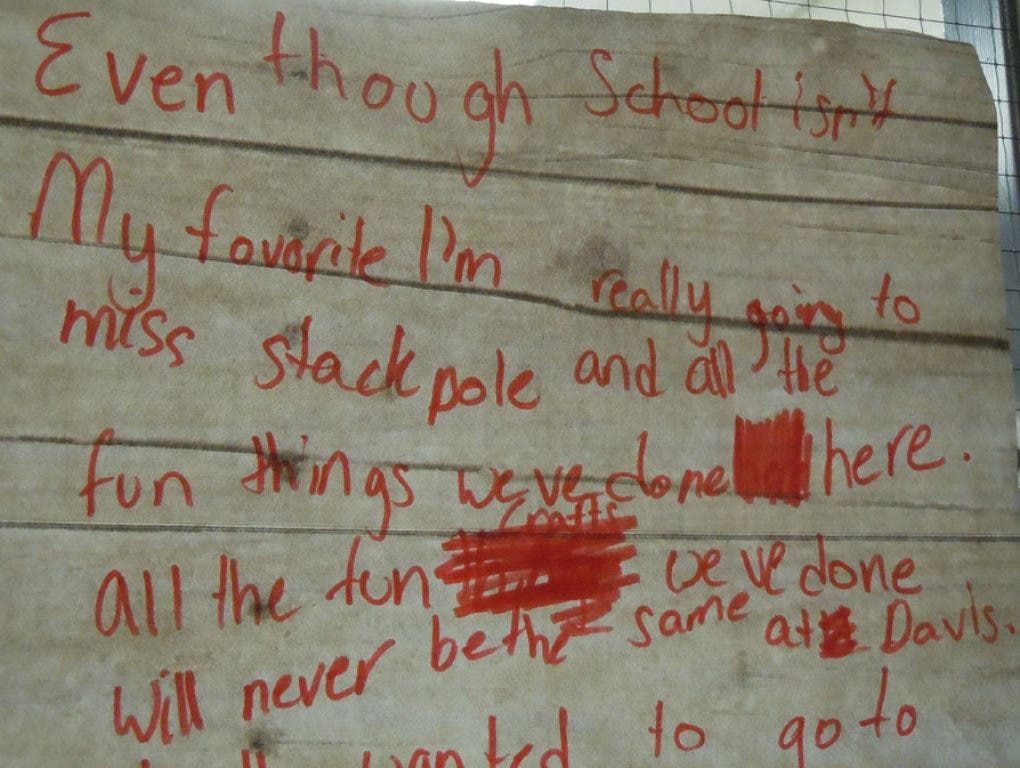 Even though School isn't
My favorite I'm really going to
miss stackpole and all the
fun things we've done here.
crafts
all the fun we've done
will never be the same at Davis.
wanted to go to